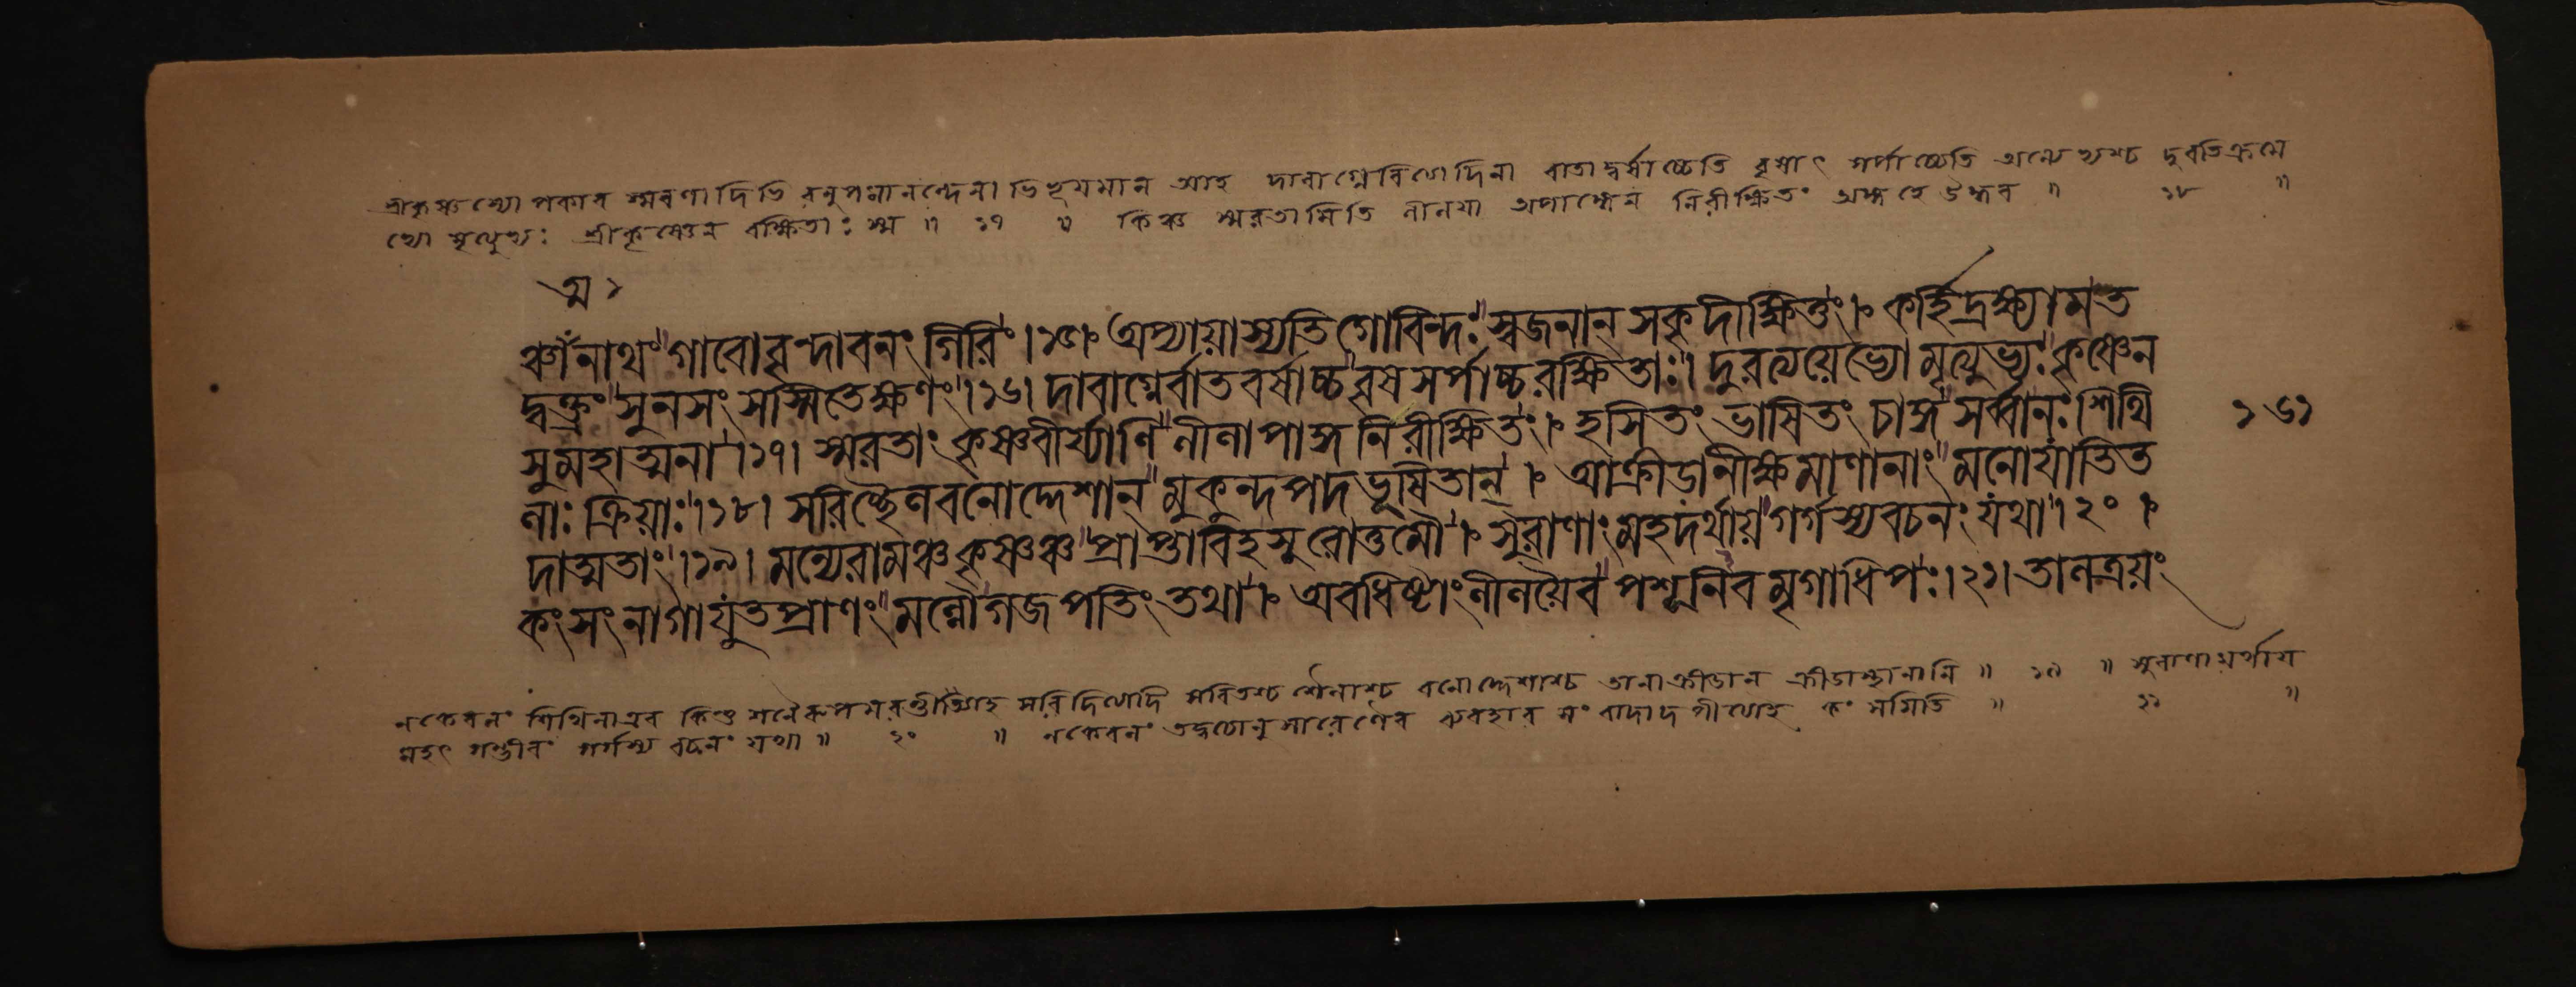 শ্রীকৃষ্ণস্যোপকার স্মরণাদিভি রনুপমানন্দেনাভিভূয়মান আহ দাবাগ্নেরিত্যাদিনা বাতাদ্বর্ষাচ্চেতি বৃষাৎ সর্পাচ্চেতি অন্যেভ্যশ্চ দুরতিক্রমে
ভ্যো মৃত্যুভ্যঃ শ্রীকৃষ্ণেন রক্ষিতাঃ স্ম ॥ ১৭ ॥ কিঞ্চ স্মরতামিতি লীলয়া অপাঙ্গেন নিরীক্ষিতং অঙ্গ হে উদ্ধব ॥ ১৮ ॥
ঞ্চাঁনাথং গাবো বৃন্দাবনং গিরিং।১৫। অপ্যায়াস্যতি গোবিন্দঃ স্বজনান্ সকৃদীক্ষিতুং। কর্হি দ্রক্ষ্যাম ত
দ্বক্ত্রং সুনসং সস্মিতেক্ষণং।১৬। দাবাগ্নের্বাতবর্ষাচ্চ বৃষসর্পাচ্চ রক্ষিতাঃ। দুরত্যয়েভ্যো মৃত্যুভ্যঃ কৃষ্ণেন
সুমহাত্মনা।১৭। স্মরতাং কৃষ্ণবীর্য্যাণি লীলাপাঙ্গনিরীক্ষিতং। হসিতং ভাষিতং চাঙ্গ সর্ব্বা নঃ শিথি ১৬১
লাঃ ক্রিয়াঃ।১৮। সরিচ্ছৈলবনোদ্দেশান্ মুকুন্দপদভূষিতান্। আক্রীড়ানীক্ষমাণানাং মনো যাতি ত
দাত্মতাং।১৯। মন্যে রামঞ্চ কৃষ্ণঞ্চ প্রাপ্তাবিহ সুরোত্তমৌ। সুরাণাং মহদর্থায় গর্গস্য বচনং যথা।২০।
কংসং নাগাযুতপ্রাণং মল্লৌ গজপতিং তথা। অবধিষ্টাং লীলয়ৈব পশূনিব মৃগাধিপঃ।২১। তালত্রয়ং
ন কেবলং শিথিলা এব কিন্তু সরিদিত্যাদি সরিতশ্চ শৈলাশ্চ বনোদ্দেশাশ্চ তানাক্রীডান ক্রীডাস্থানানি ॥ ১৯ ॥ সুরাণামর্থায়
মহৎ গম্ভীরং গর্গস্য বচনং যথা ॥ ২০ ॥ ন কেবলং কংসমিতি ॥ ২১ ॥